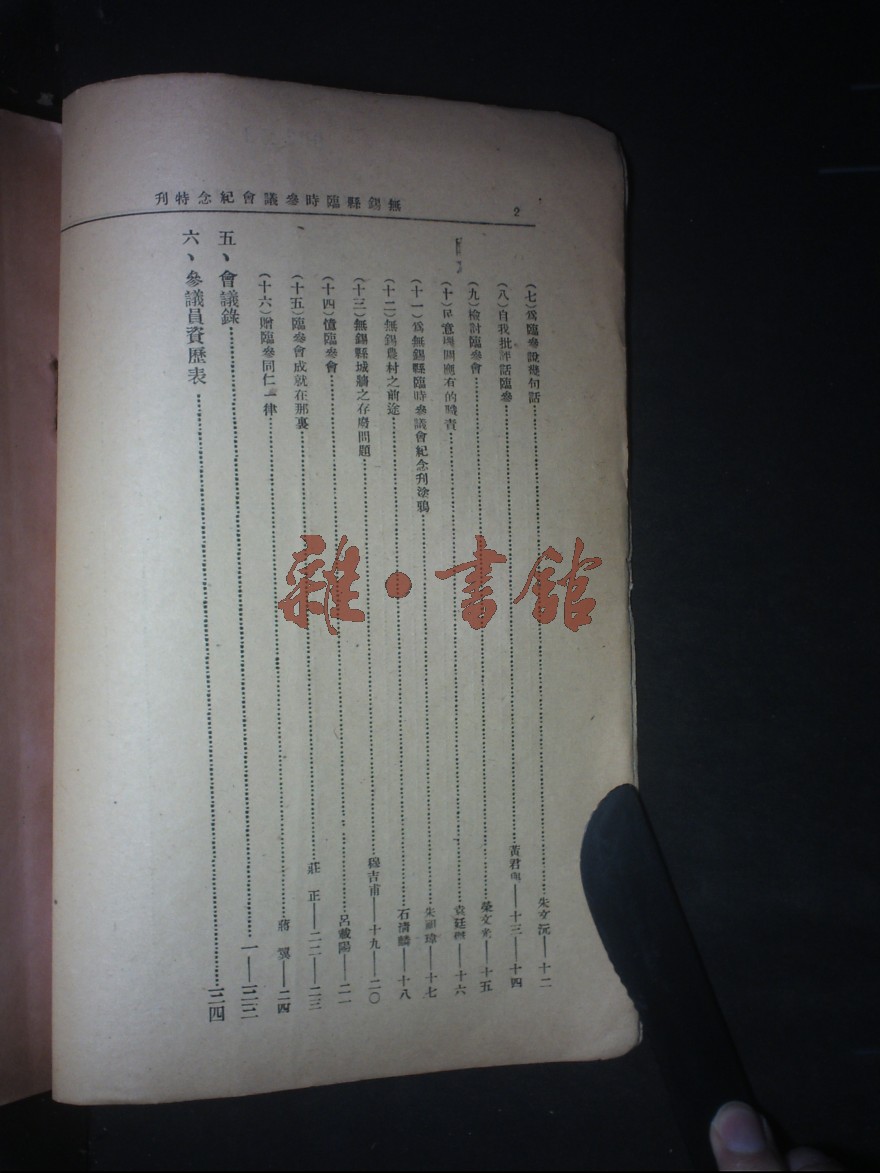 無錫縣臨時參議會紀念特刊
2
（七）爲臨參說幾句話 朱文沅——十二
（八）自我批評話臨參 黃君——十三——十四
（九）檢討臨參會 榮文——十五
（十）民意機關應有的職責 袁廷——十六
（十一）爲無錫縣臨時參議會紀念刊塗鴉 朱瑋——十七
（十二）無錫農村之前途 石濤麟——十八
（十三）無錫縣城牆之存廢問題 穆吉甫——十九——二〇
（十四）憶臨參會 呂載陽——二一
（十五）臨參會成就在那裏 莊 正——二二——二三
（十六）贈臨參同仁一律 蔣 翼——二四
五、會議錄 一——三三
六、參議員資歷表 三四
雜·書館